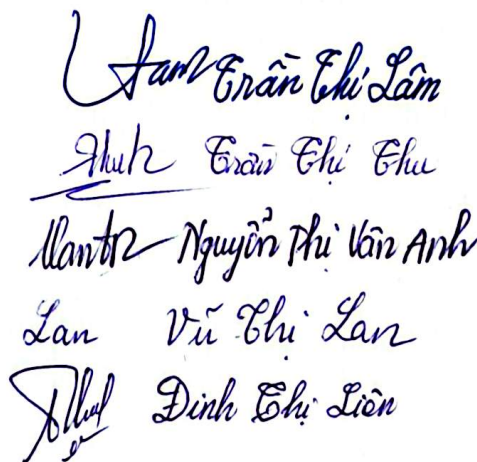 Trần Thị Lâm
Trần Thị Thu
Nguyễn Thị Vân Anh
Lan Vũ Thị Lan
Đinh Thị Liên